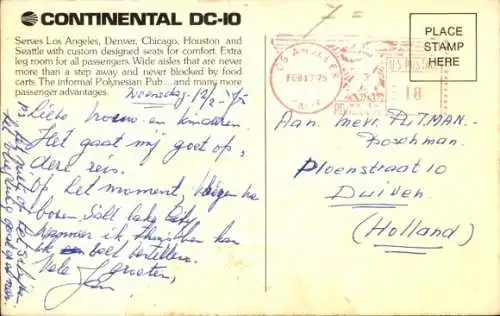 CONTINENTAL DC-10
Serves Los Angeles, Denver, Chicago, Houston and
Seattle with custom designed seats for comfort. Extra
leg room for all passengers. Wide aisles that are never
more than a step away and never blocked by food
carts. The informal Polynesian Pub... and many more
passenger advantages.
Woensdag 12/2-75
Lieve vrouw en kinderen.
Het gaat mij goet op
dere reis.
Op het moment, vliegen we
boven Salt lake City
Wanneer ik thuis ben kan
ik een boel vertellen.
Vele groeten,
Jan
7=
LOS ANGELES
FEB 13 '75
CALIF
U.S. POSTAGE
18
PLACE
STAMP
HERE
Aan. mevr. PUTMAN-
Boschman.
Ploenstraat 10
Duiven
(Holland)